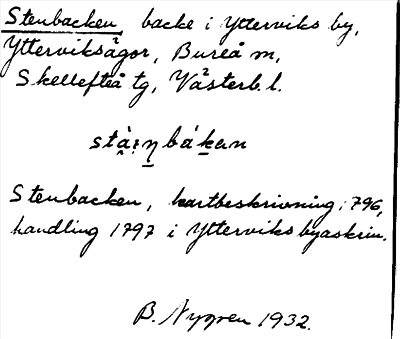 Stenbacken, backe i Ytterviks by,
Ytterviksägor, Bureå m,
Skellefteå tg, Västerb. l.
Stenbacken, kartbeskrivning 1796,
handling 1797 i Ytterviks byaskrin.
B. Nygren 1932.